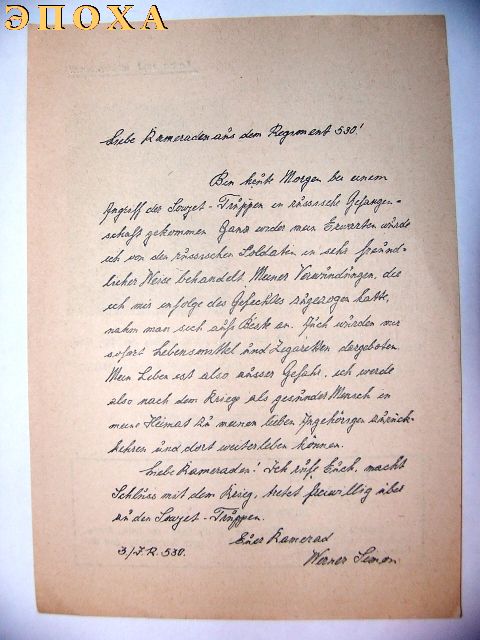 ЭПОХА
Liebe Kameraden aus dem Regiment 530!
Bin heute Morgen bei einem
Angriff der Sowjet-Truppen in russische Gefangen-
schaft gekommen. Ganz wider mein Erwarten wurde
ich von den russischen Soldaten in sehr freund-
licher Weise behandelt. Meiner Verwundungen, die
ich mir infolge des Gefechtes zugezogen hatte,
nahm man sich aufs Beste an. Auch wurden mir
sofort Lebensmittel und Zigaretten dargeboten.
Mein Leben ist also ausser Gefahr, ich werde
also nach dem Krieg als gesunder Mensch in
meine Heimat zu meinen lieben Angehörigen zurück-
kehren und dort weiterleben können.
Liebe Kameraden! Ich rufe Euch, macht
Schluss mit dem Krieg, tretet freiwillig über
zu den Sowjet-Truppen.
Euer Kamerad
3/J.R. 530.
Werner Simon